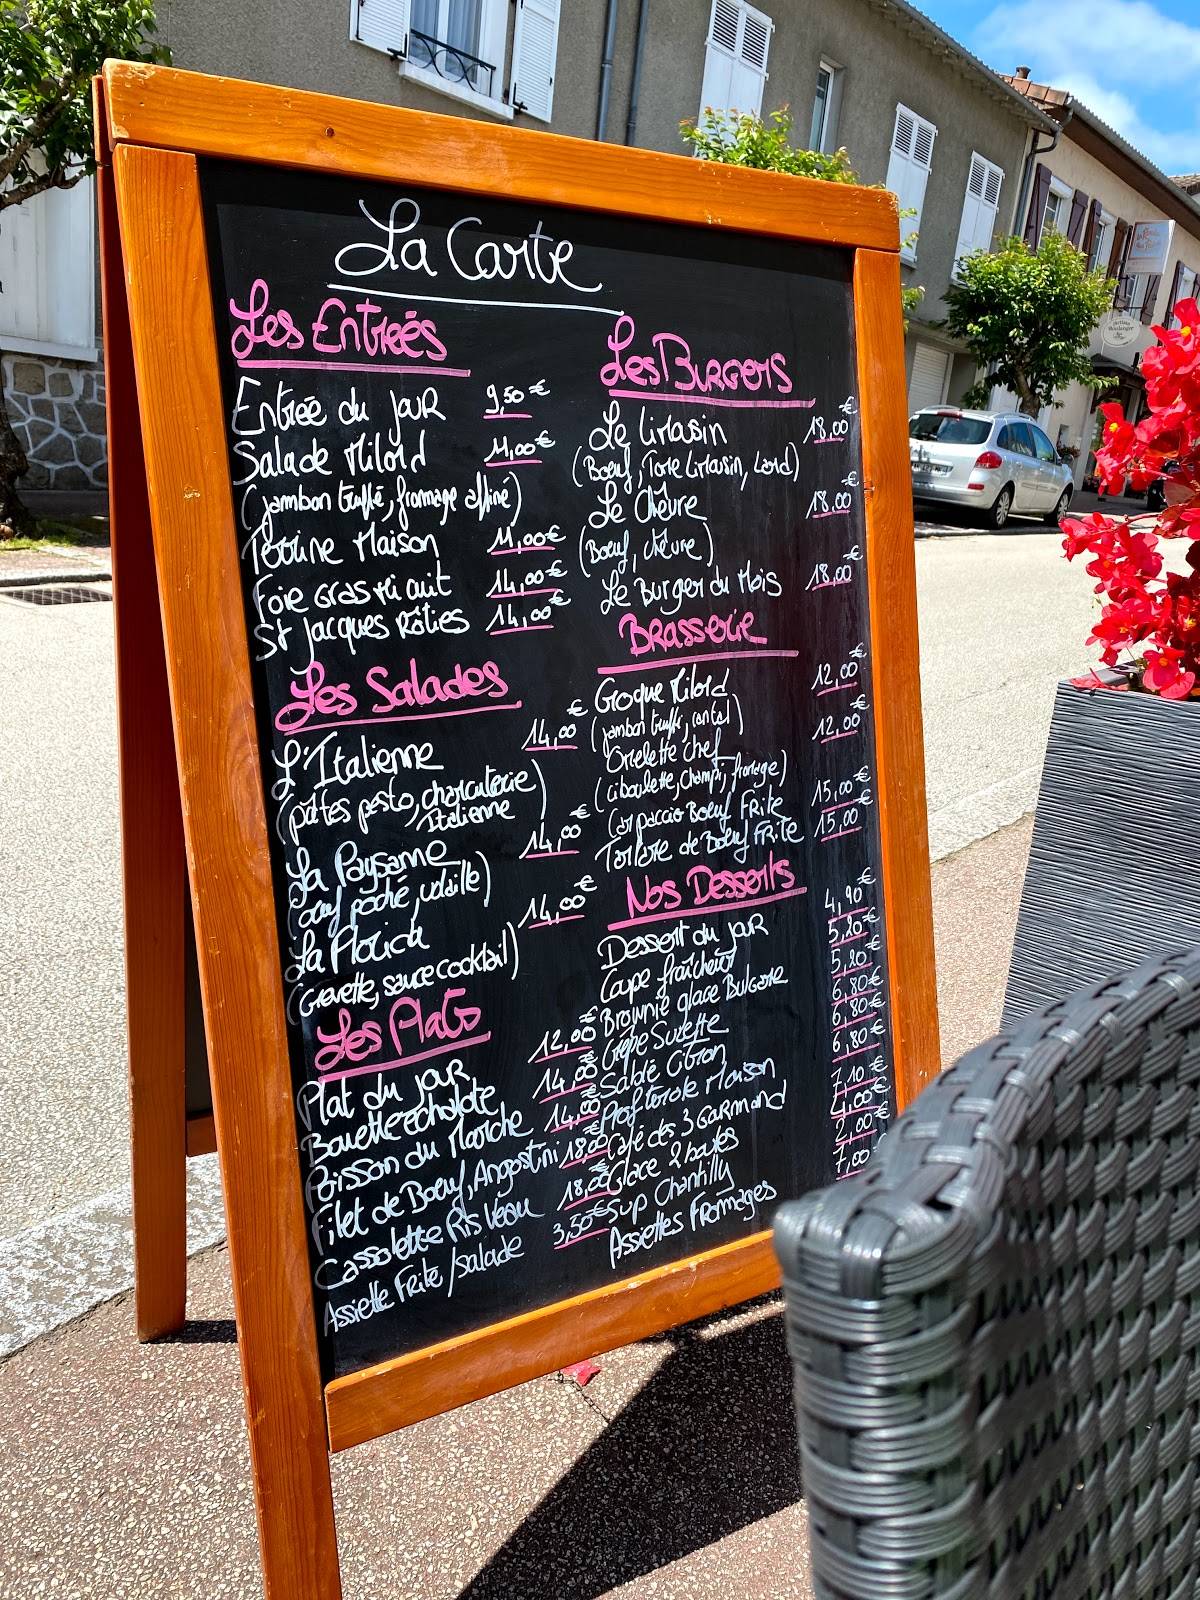 La Carte
Les Entrées
Entrée du jour 9,50€
Salade Milord 11,00€
(jambon truffé, fromage affiné)
Terrine Maison 11,00€
Foie Gras mi cuit 14,00€
St Jacques Rôties 14,00€
Les Salades
L'Italienne 14,00€
(pâtes pesto, charcuterie
Italienne)
La Paysanne 14,00€
(œuf poché, volaille)
La Florida 14,00€
(Crevette, sauce cocktail)
Les Plats
Plat du jour 12,00€
Bavette echalote 14,00€
Poisson du Marche 14,00€
Filet de Boeuf, Angostini 18,00€
Cassolette Ris Veau 18,00€
Assiette Frite / salade 3,50€
Les Burgers
Le Limousin 18,00€
(Boeuf, Tome Limousin, Lard)
Le Chèvre 18,00€
(Boeuf, chèvre)
Le Burger du Mois 18,00€
Brasserie
Croque Milord 12,00€
(jambon truffé, cantal)
Omelette Chef 12,00€
(ciboulette, champi, fromage)
Carpaccio Boeuf Frite 15,00€
Tartare de Boeuf Frite 15,00€
Nos Desserts
Dessert du jour 4,90€
Coupe fraîcheur 5,20€
Brownie glace Bulgare 5,20€
Crêpe Suzette 6,80€
Sablé Citron 6,80€
Profiterole Maison 6,80€
Café des 3 Gourmand 7,10€
Glace 2 boules 4,00€
Sup Chantilly 2,00€
Assiettes Fromages 7,00€